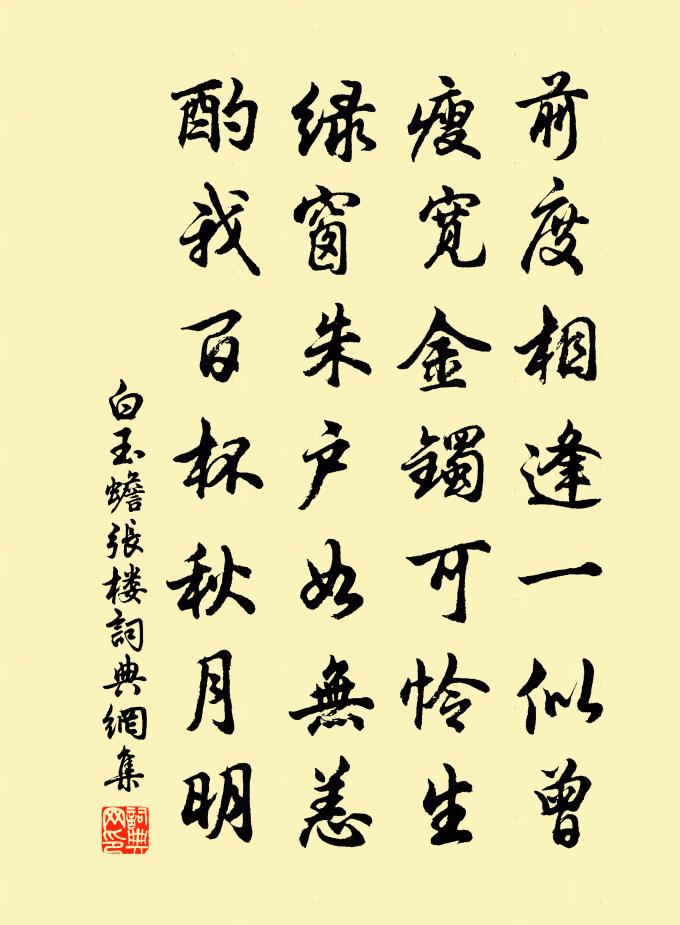 前度相逢一似曽
瘦寛金鐲可怜生
緑窗朱户如無恙
酌我百杯秋月明
白玉蟾張楼詞典網集
詞典網印